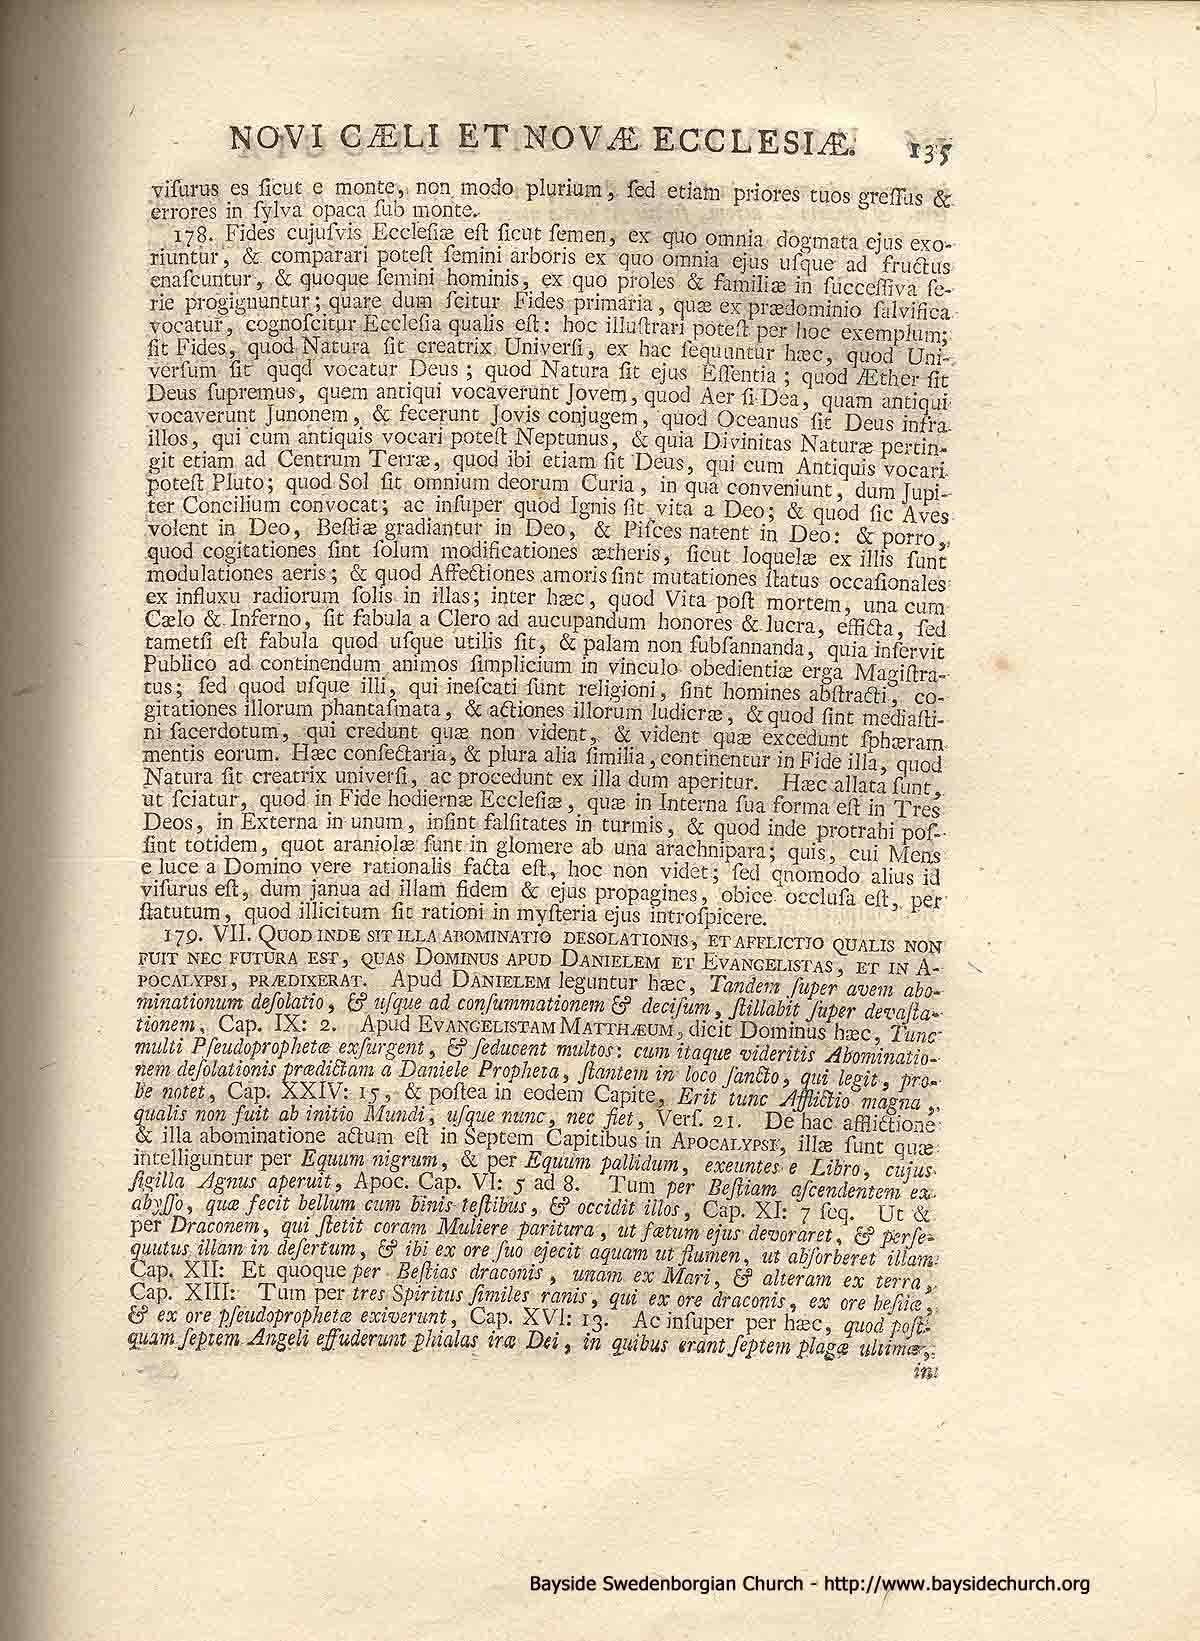 NOVI CÆLI ET NOVÆ ECCLESIÆ. 135
viſurus es ſicut e monte, non modo plurium, ſed etiam priores tuos greſſus &
errores in ſylva opaca ſub monte.
178. Fides cujuſvis Eccleſiæ eſt ſicut ſemen, ex quo omnia dogmata ejus exo-
riuntur, & comparari poteſt ſemini arboris ex quo omnia ejus uſque ad fructus
enaſcuntur, & quoque ſemini hominis, ex quo proles & familiæ in ſucceſſiva ſe-
rie progignuntur; quare dum ſcitur Fides primaria, quæ ex prædominio ſalvifica
vocatur, cognoſcitur Eccleſia qualis eſt: hoc illuſtrari poteſt per hoc exemplum;
ſit Fides, quod Natura ſit creatrix Univerſi, ex hac ſequuntur hæc, quod Uni-
verſum ſit quqd vocatur Deus; quod Natura ſit ejus Eſſentia; quod Æther ſit
Deus ſupremus, quem antiqui vocaverunt Jovem, quod Aer ſi Dea, quam antiqui
vocaverunt Junonem, & fecerunt Jovis conjugem, quod Oceanus ſit Deus infra
illos, qui cum antiquis vocari poteſt Neptunus, & quia Divinitas Naturæ pertin-
git etiam ad Centrum Terræ, quod ibi etiam ſit Deus, qui cum Antiquis vocari
poteſt Pluto; quod Sol ſit omnium deorum Curia, in qua conveniunt, dum Jupi-
ter Concilium convocat; ac inſuper quod Ignis ſit vita a Deo; & quod ſic Aves
volent in Deo, Beſtiæ gradiantur in Deo, & Piſces natent in Deo: & porro,
quod cogitationes ſint ſolum modificationes ætheris, ſicut loquelæ ex illis ſunt
modulationes aeris; & quod Affectiones amoris ſint mutationes ſtatus occaſionales
ex influxu radiorum ſolis in illas; inter hæc, quod Vita poſt mortem, una cum
Cælo & Inferno, ſit fabula a Clero ad aucupandum honores & lucra, efficta, ſed
tametſi eſt fabula quod uſque utilis ſit, & palam non ſubſannanda, quia inſervit
Publico ad continendum animos ſimplicium in vinculo obedientiæ erga Magiſtra-
tus; ſed quod uſque illi, qui ineſcati ſunt religioni, ſint homines abſtracti, co-
gitationes illorum phantaſmata, & actiones illorum ludicræ, & quod ſint mediaſti-
ni ſacerdotum, qui credunt quæ non vident, & vident quæ excedunt ſphæram
mentis eorum. Hæc conſectaria, & plura alia ſimilia, continentur in Fide illa, quod
Natura ſit creatrix univerſi, ac procedunt ex illa dum aperitur. Hæc allata ſunt,
ut ſciatur, quod in Fide hodiernæ Eccleſiæ, quæ in Interna ſua forma eſt in Tres
Deos, in Externa in unum, inſint falſitates in turmis, & quod inde protrahi poſ-
ſint totidem, quot araniolæ ſunt in glomere ab una arachnipara; quis, cui Mens
e luce a Domino vere rationalis facta eſt, hoc non videt; ſed qnomodo alius id
viſurus eſt, dum janua ad illam fidem & ejus propagines, obice occluſa eſt, per
ſtatutum, quod illicitum ſit rationi in myſteria ejus introſpicere.
179. VII. QUOD INDE SIT ILLA ABOMINATIO DESOLATIONIS, ET AFFLICTIO QUALIS NON
FUIT NEC FUTURA EST, QUAS DOMINUS APUD DANIELEM ET EVANGELISTAS, ET IN A-
POCALYPSI, PRÆDIXERAT. Apud DANIELEM leguntur hæc, Tandem ſuper avem abo-
minationum deſolatio, & uſque ad conſummationem & deciſum, ſtillabit ſuper devaſta-
tionem, Cap. IX: 2. Apud EVANGELISTAM MATTHÆUM, dicit Dominus hæc, Tunc
multi Pſeudoprophetæ exſurgent, & ſeducent multos: cum itaque videritis Abominatio-
nem deſolationis prædictam a Daniele Propheta, ſtantem in loco ſancto, qui legit, pro-
be notet, Cap. XXIV: 15, & poſtea in eodem Capite, Erit tunc Afflictio magna,
qualis non fuit ab initio Mundi, uſque nunc, nec fiet, Verſ. 21. De hac afflictione
& illa abominatione actum eſt in Septem Capitibus in APOCALYPSI, illæ ſunt quæ
intelliguntur per Equum nigrum, & per Equum pallidum, exeuntes e Libro, cujus
ſigilla Agnus aperuit, Apoc. Cap. VI: 5 ad 8. Tum per Beſtiam aſcendentem ex
abyſſo, quæ fecit bellum cum binis teſtibus, & occidit illos, Cap. XI: 7 ſeq. Ut &
per Draconem, qui ſtetit coram Muliere paritura, ut fætum ejus devoraret, & perſe-
quutus illam in deſertum, & ibi ex ore ſuo ejecit aquam ut flumen, ut abſorberet illam
Cap. XII: Et quoque per Beſtias draconis, unam ex Mari, & alteram ex terra,
Cap. XIII: Tum per tres Spiritus ſimiles ranis, qui ex ore draconis, ex ore beſtiæ,
& ex ore pſeudoprophetæ exiverunt, Cap. XVI: 13. Ac inſuper per hæc, quod poſt-
quam ſeptem Angeli effuderunt phialas iræ Dei, in quibus erant ſeptem plagæ ultimæ,
in
Bayside Swedenborgian Church - http://www.baysidechurch.org